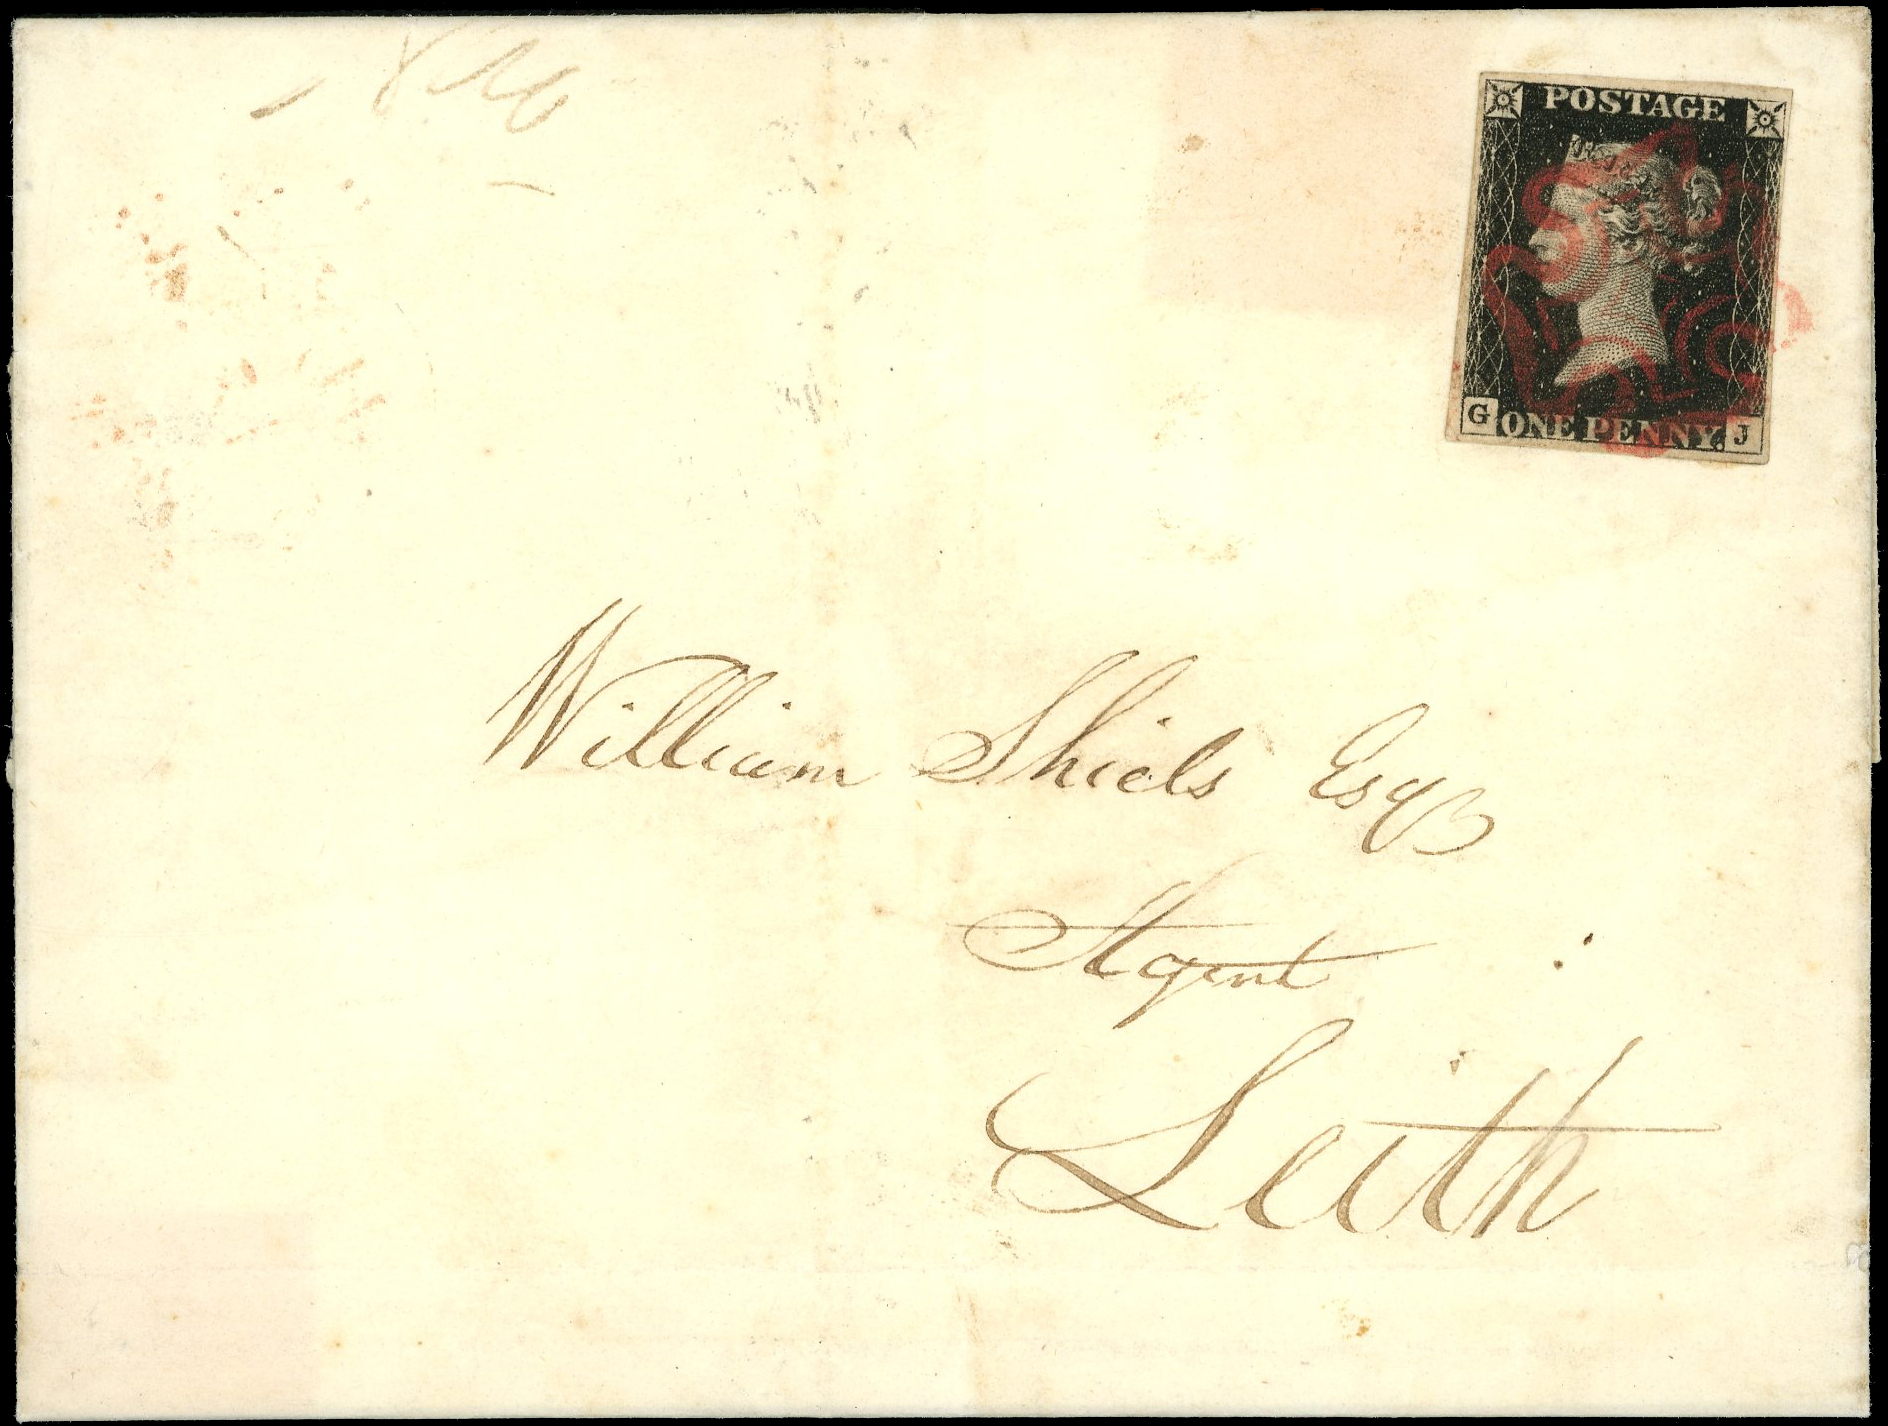 POSTAGE
G ONE PENNY. J
William Shiels Esqr
Agent
Leith